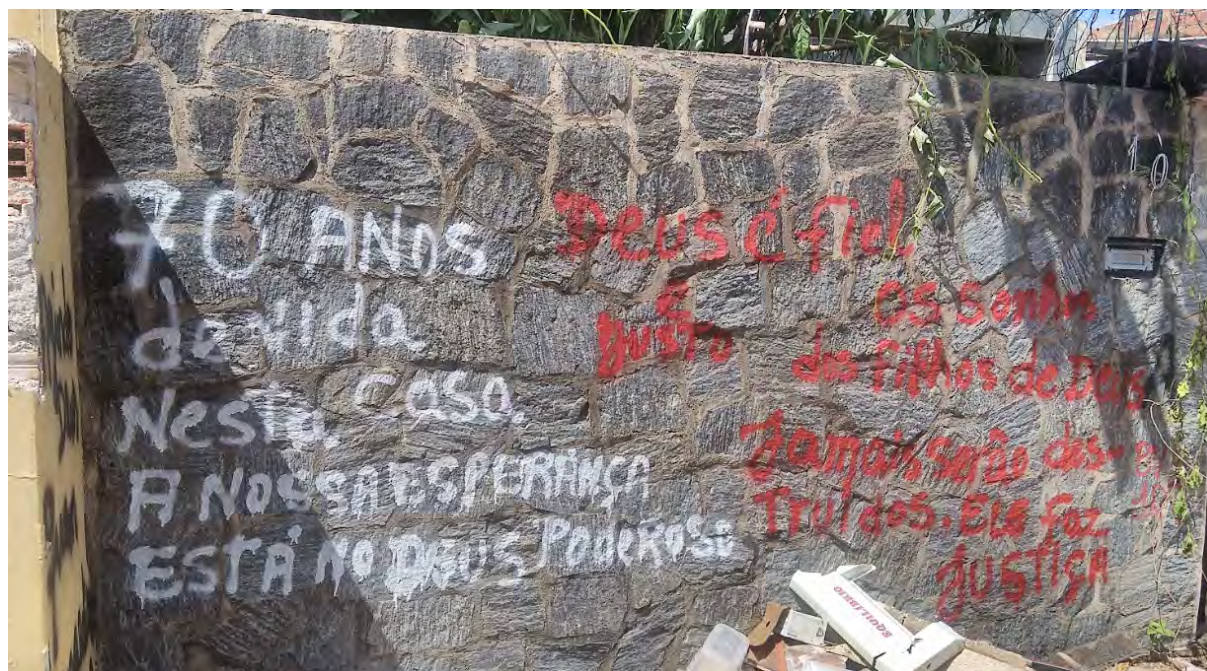 70 ANOS
de vida
Nesta casa
A NOSSA ESPERANÇA
ESTÁ NO DEUS PODEROSO
Deus é fiel
é
justo
Os sonhos
dos filhos de Deus
Jamais serão des-
truídos. Ele faz
JUSTIÇA
EQUILIBRIO